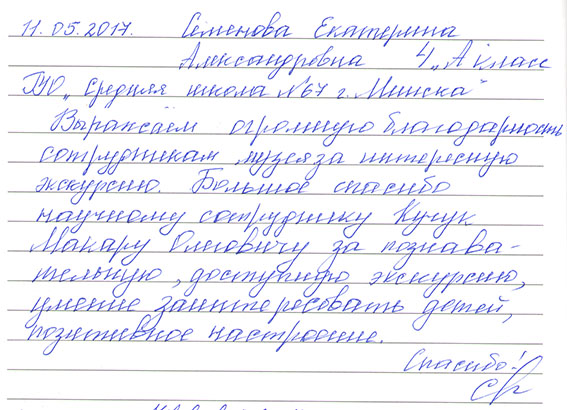 11.05.2017. Семенова Екатерина
Александровна 4 „А" класс
ГУО „Средняя школа №67 г. Минска"
Выражаем огромную благодарность
сотрудникам музея за интересную
экскурсию. Большое спасибо
научному сотруднику Кучук
Макару Олеговичу за познава-
тельную, доступную экскурсию,
умение заинтересовать детей,
позитивное настроение.
Спасибо!